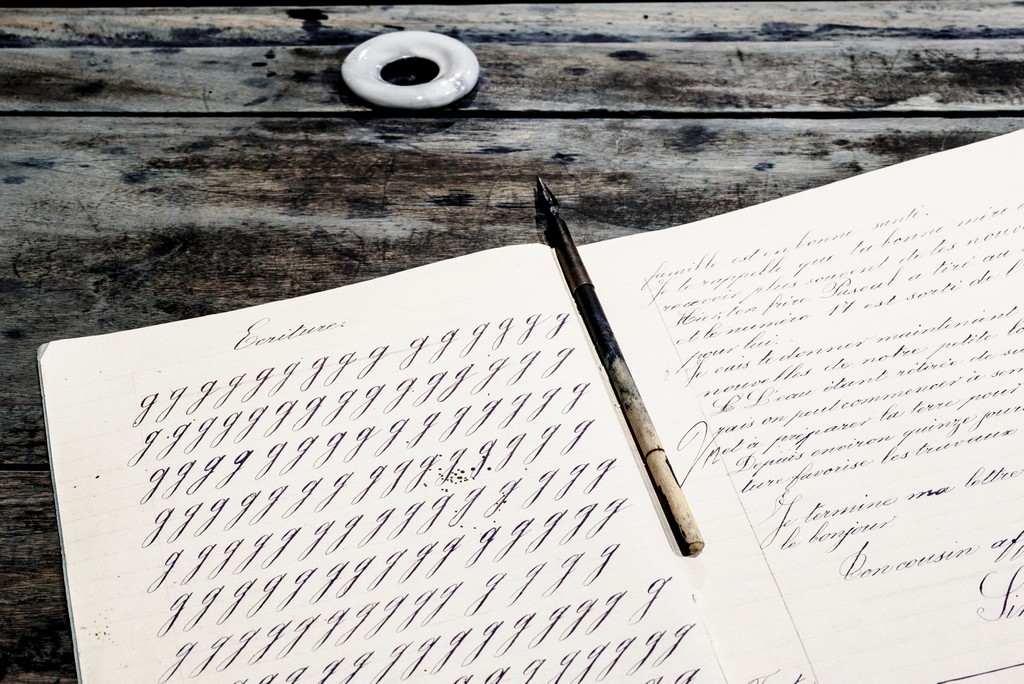 Ecriture.
g g g g g g g g g g g g g g g
g g g g g g g g g g g g g g g
g g g g g g g g g g g g g g g
g g g g g g g g g g g g g g g
g g g g g g g g g g g g g g g
g g g g g g g g g g g g g g g
g g g g g g g g g g g g g g
g g g g g g g g g g g g g g
g g g g g g g g g g g g
famille est en bonne santé.
Je te rappelle que ta bonne mère
recevoir plus souvent de tes nouv
ton frère Pascal a tiré au
et le numéro 17 est sorti de l'
pour lui.
Je vais te donner maintenant
nouvelles de notre petite
L'eau étant retirée de
on peut commencer à
et à préparer la terre pour
Depuis environ quinze jours
ture favorise les travaux
Je termine ma lettre
le bonjour
Ton cousin aff